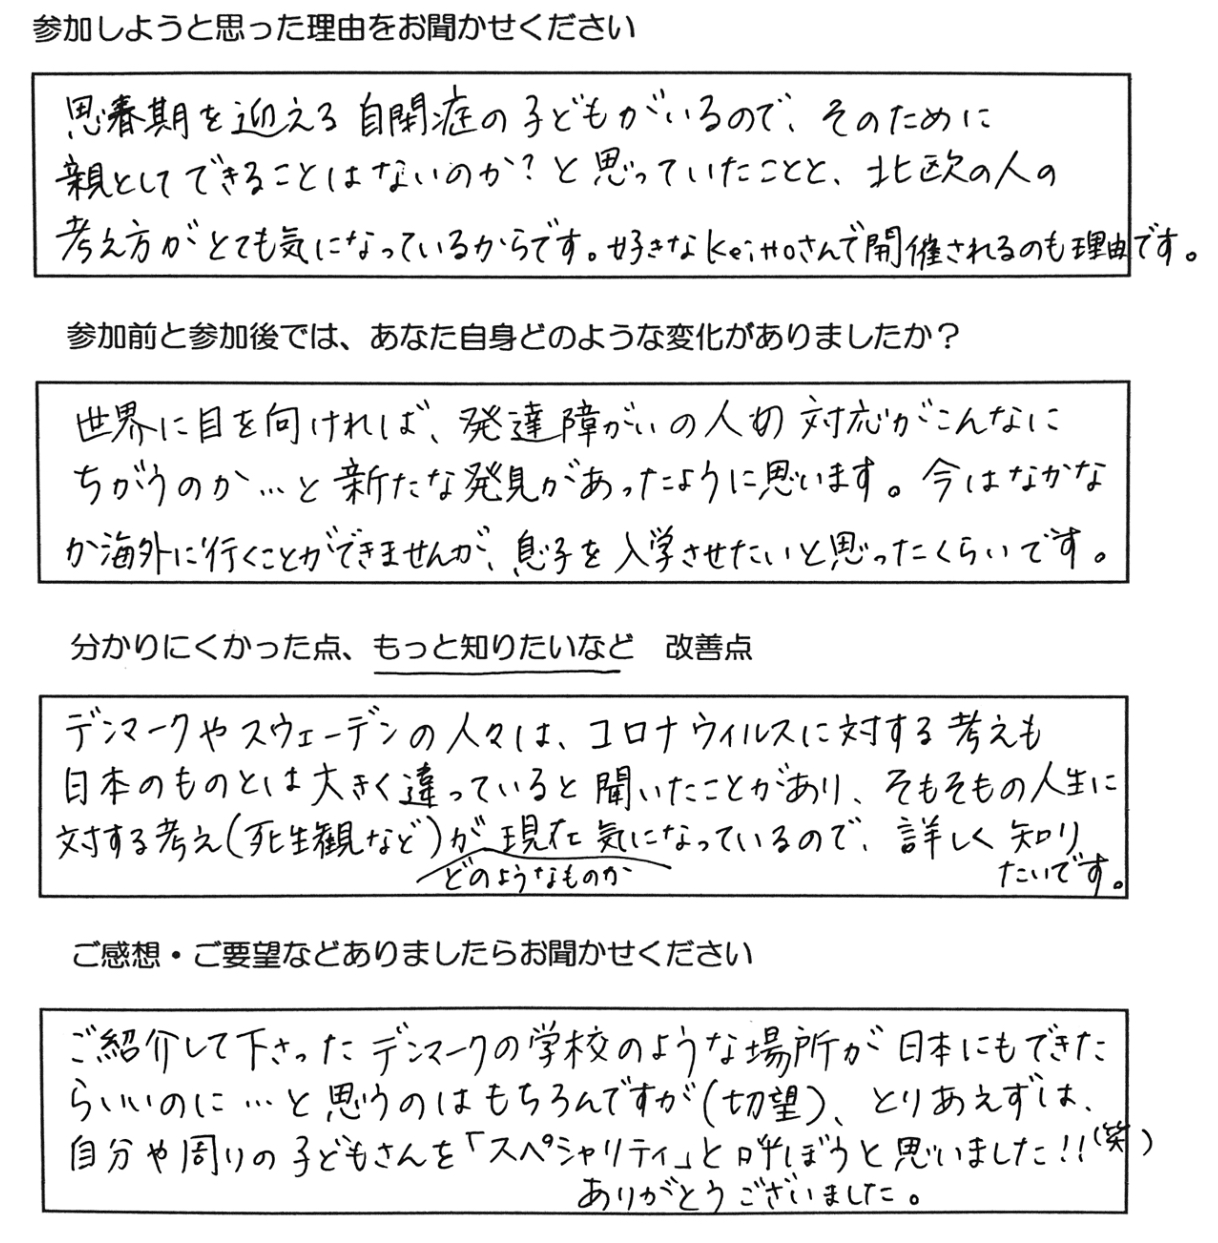 参加しようと思った理由をお聞かせください
思春期を迎える自閉症の子どもがいるので、そのために
親としてできることはないのか?と思っていたことと、北欧の人の
考え方がとても気になっているからです。好きなkeittoさんで開催されるのも理由です。
参加前と参加後では、あなた自身どのような変化がありましたか?
世界に目を向ければ、発達障がいの人の対応がこんなに
ちがうのか…と新たな発見があったように思います。今はなかな
か海外に行くことができませんが、息子を入学させたいと思ったくらいです。
分かりにくかった点、もっと知りたいなど 改善点
デンマークやスウェーデンの人々は、コロナウィルスに対する考えも
日本のものとは大きく違っていると聞いたことがあり、そもそもの人生に
対する考え(死生観など)が現在気になっているので、詳しく知り
どのようなものか
たいです。
ご感想・ご要望などありましたらお聞かせください
ご紹介して下さったデンマークの学校のような場所が日本にもできた
らいいのに…と思うのはもちろんですが(切望)、とりあえずは、
自分や周りの子どもさんを「スペシャリティ」と呼ぼうと思いました!!(笑)
ありがとうございました。